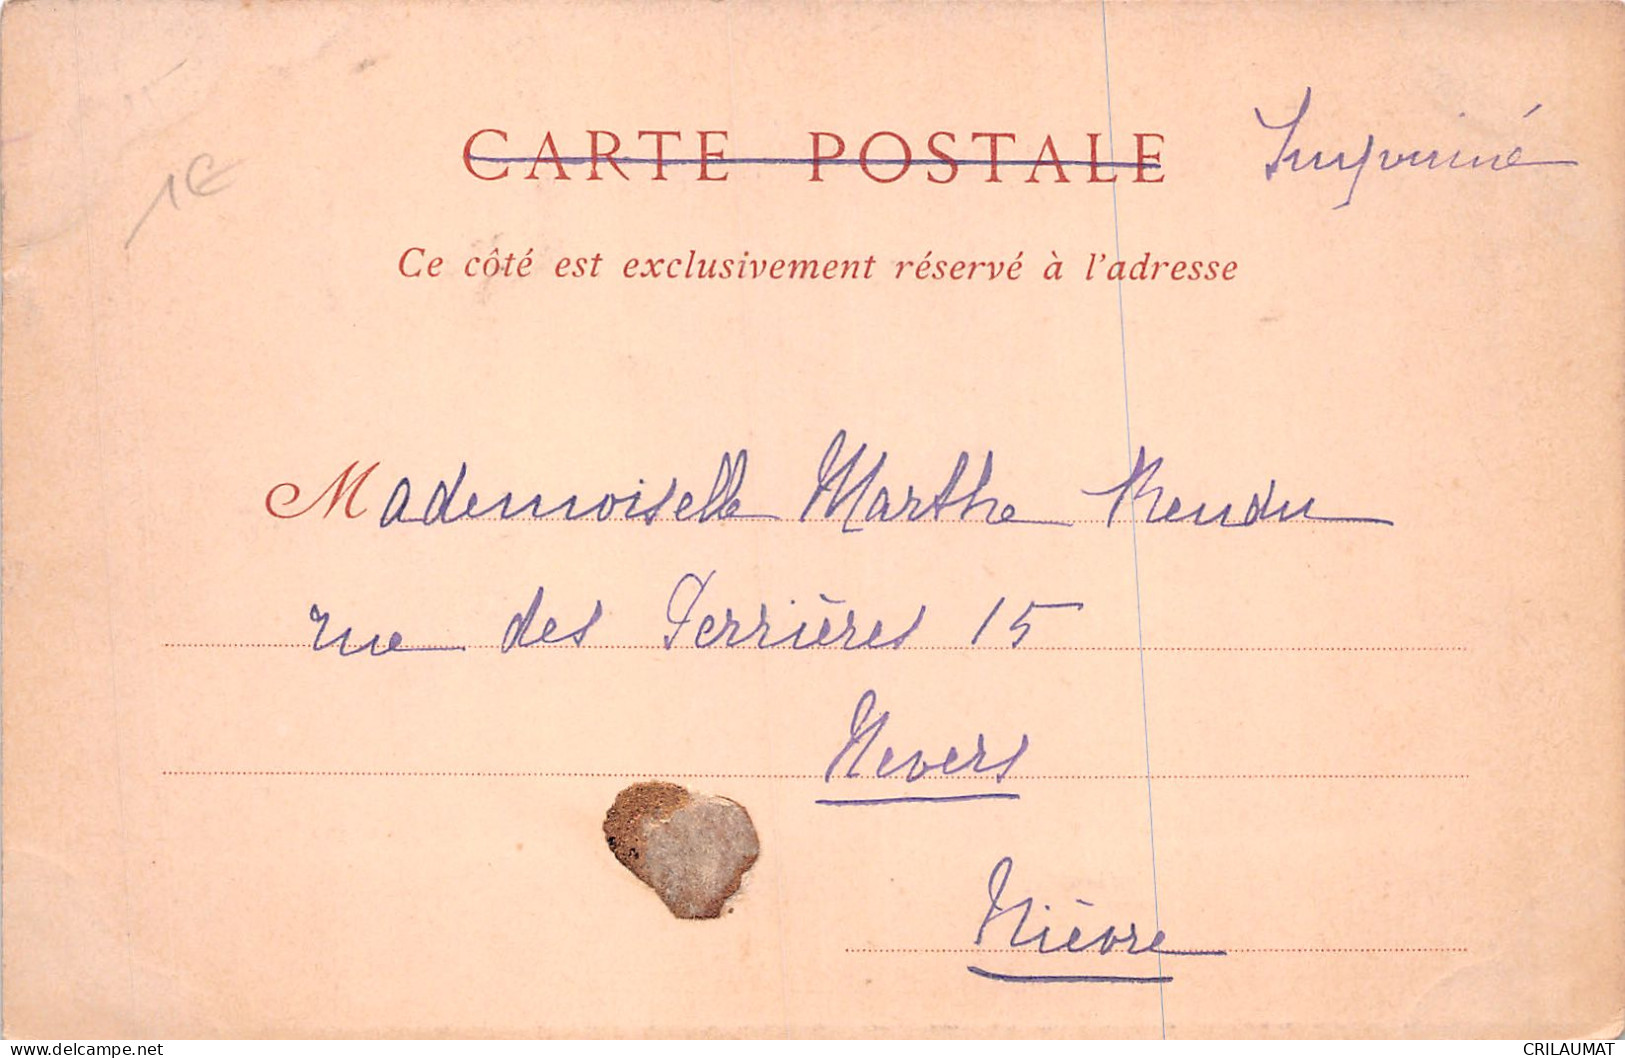 CARTE POSTALE
Imprimé
1€
Ce côté est exclusivement réservé à l'adresse
Mademoiselle Marthe Rendu
rue des Perrières 15
Nevers
Nièvre
delcampe.net
CRILAUMAT